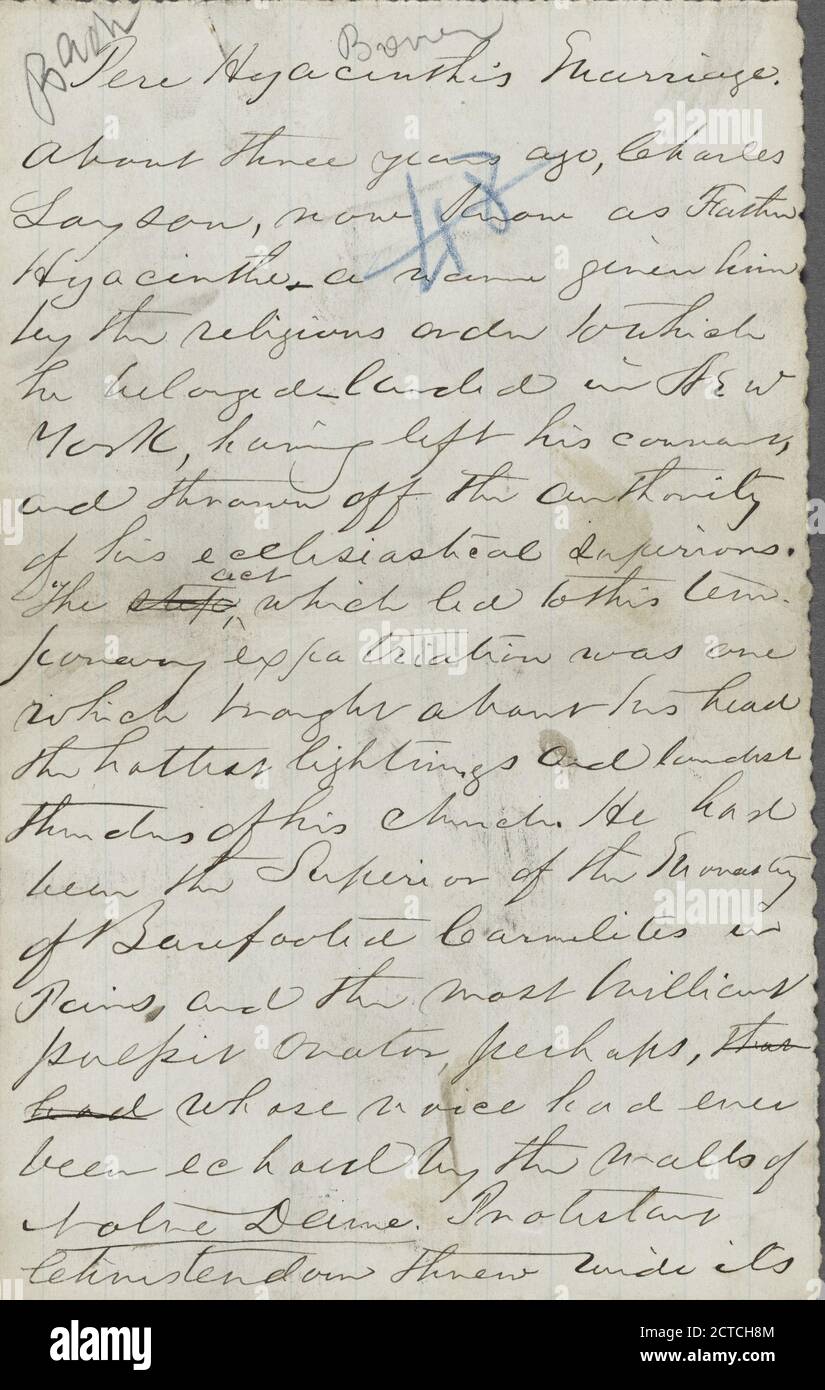 Bach
Bowen
Pere Hyacinthe's Marriage.
About three years ago, Charles
Loyson, now know as Father
Hyacinthe - a name given him
by the religious order to which
he belonged - landed in New
York, having left his convent,
and thrown off the authority
of his ecclesiastical superiors.
The step, act which led to this tem-
porary expatriation was one
which brought about his head
the hottest lightnings and loudest
thunders of his church. He had
been the Superior of the Monastery
of Barefooted Carmelites in
Paris, and the most brilliant
pulpit orator, perhaps, that
had whose voice had ever
been echoed by the walls of
Notre Dame. Protestant
Christendom threw wide its
48
alamy
Image ID: 2CTCH8M
www.alamy.com